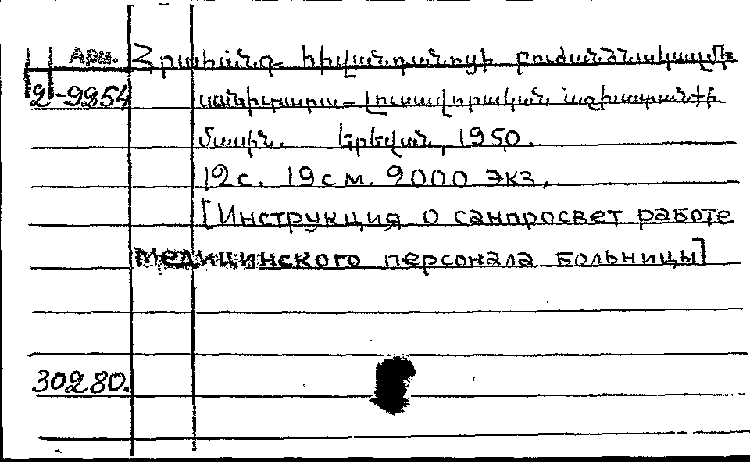 Арм. Հրահանգ հիվանդանոցի բուժանձնակազմի
2-9954 սանիտարա-լուսավորական աշխատանքի
մասին. Երեվան, 1950.
12 с. 19 см. 2000 экз.
[Инструкция о санпросвет работе
медицинского персонала больницы]
30280.